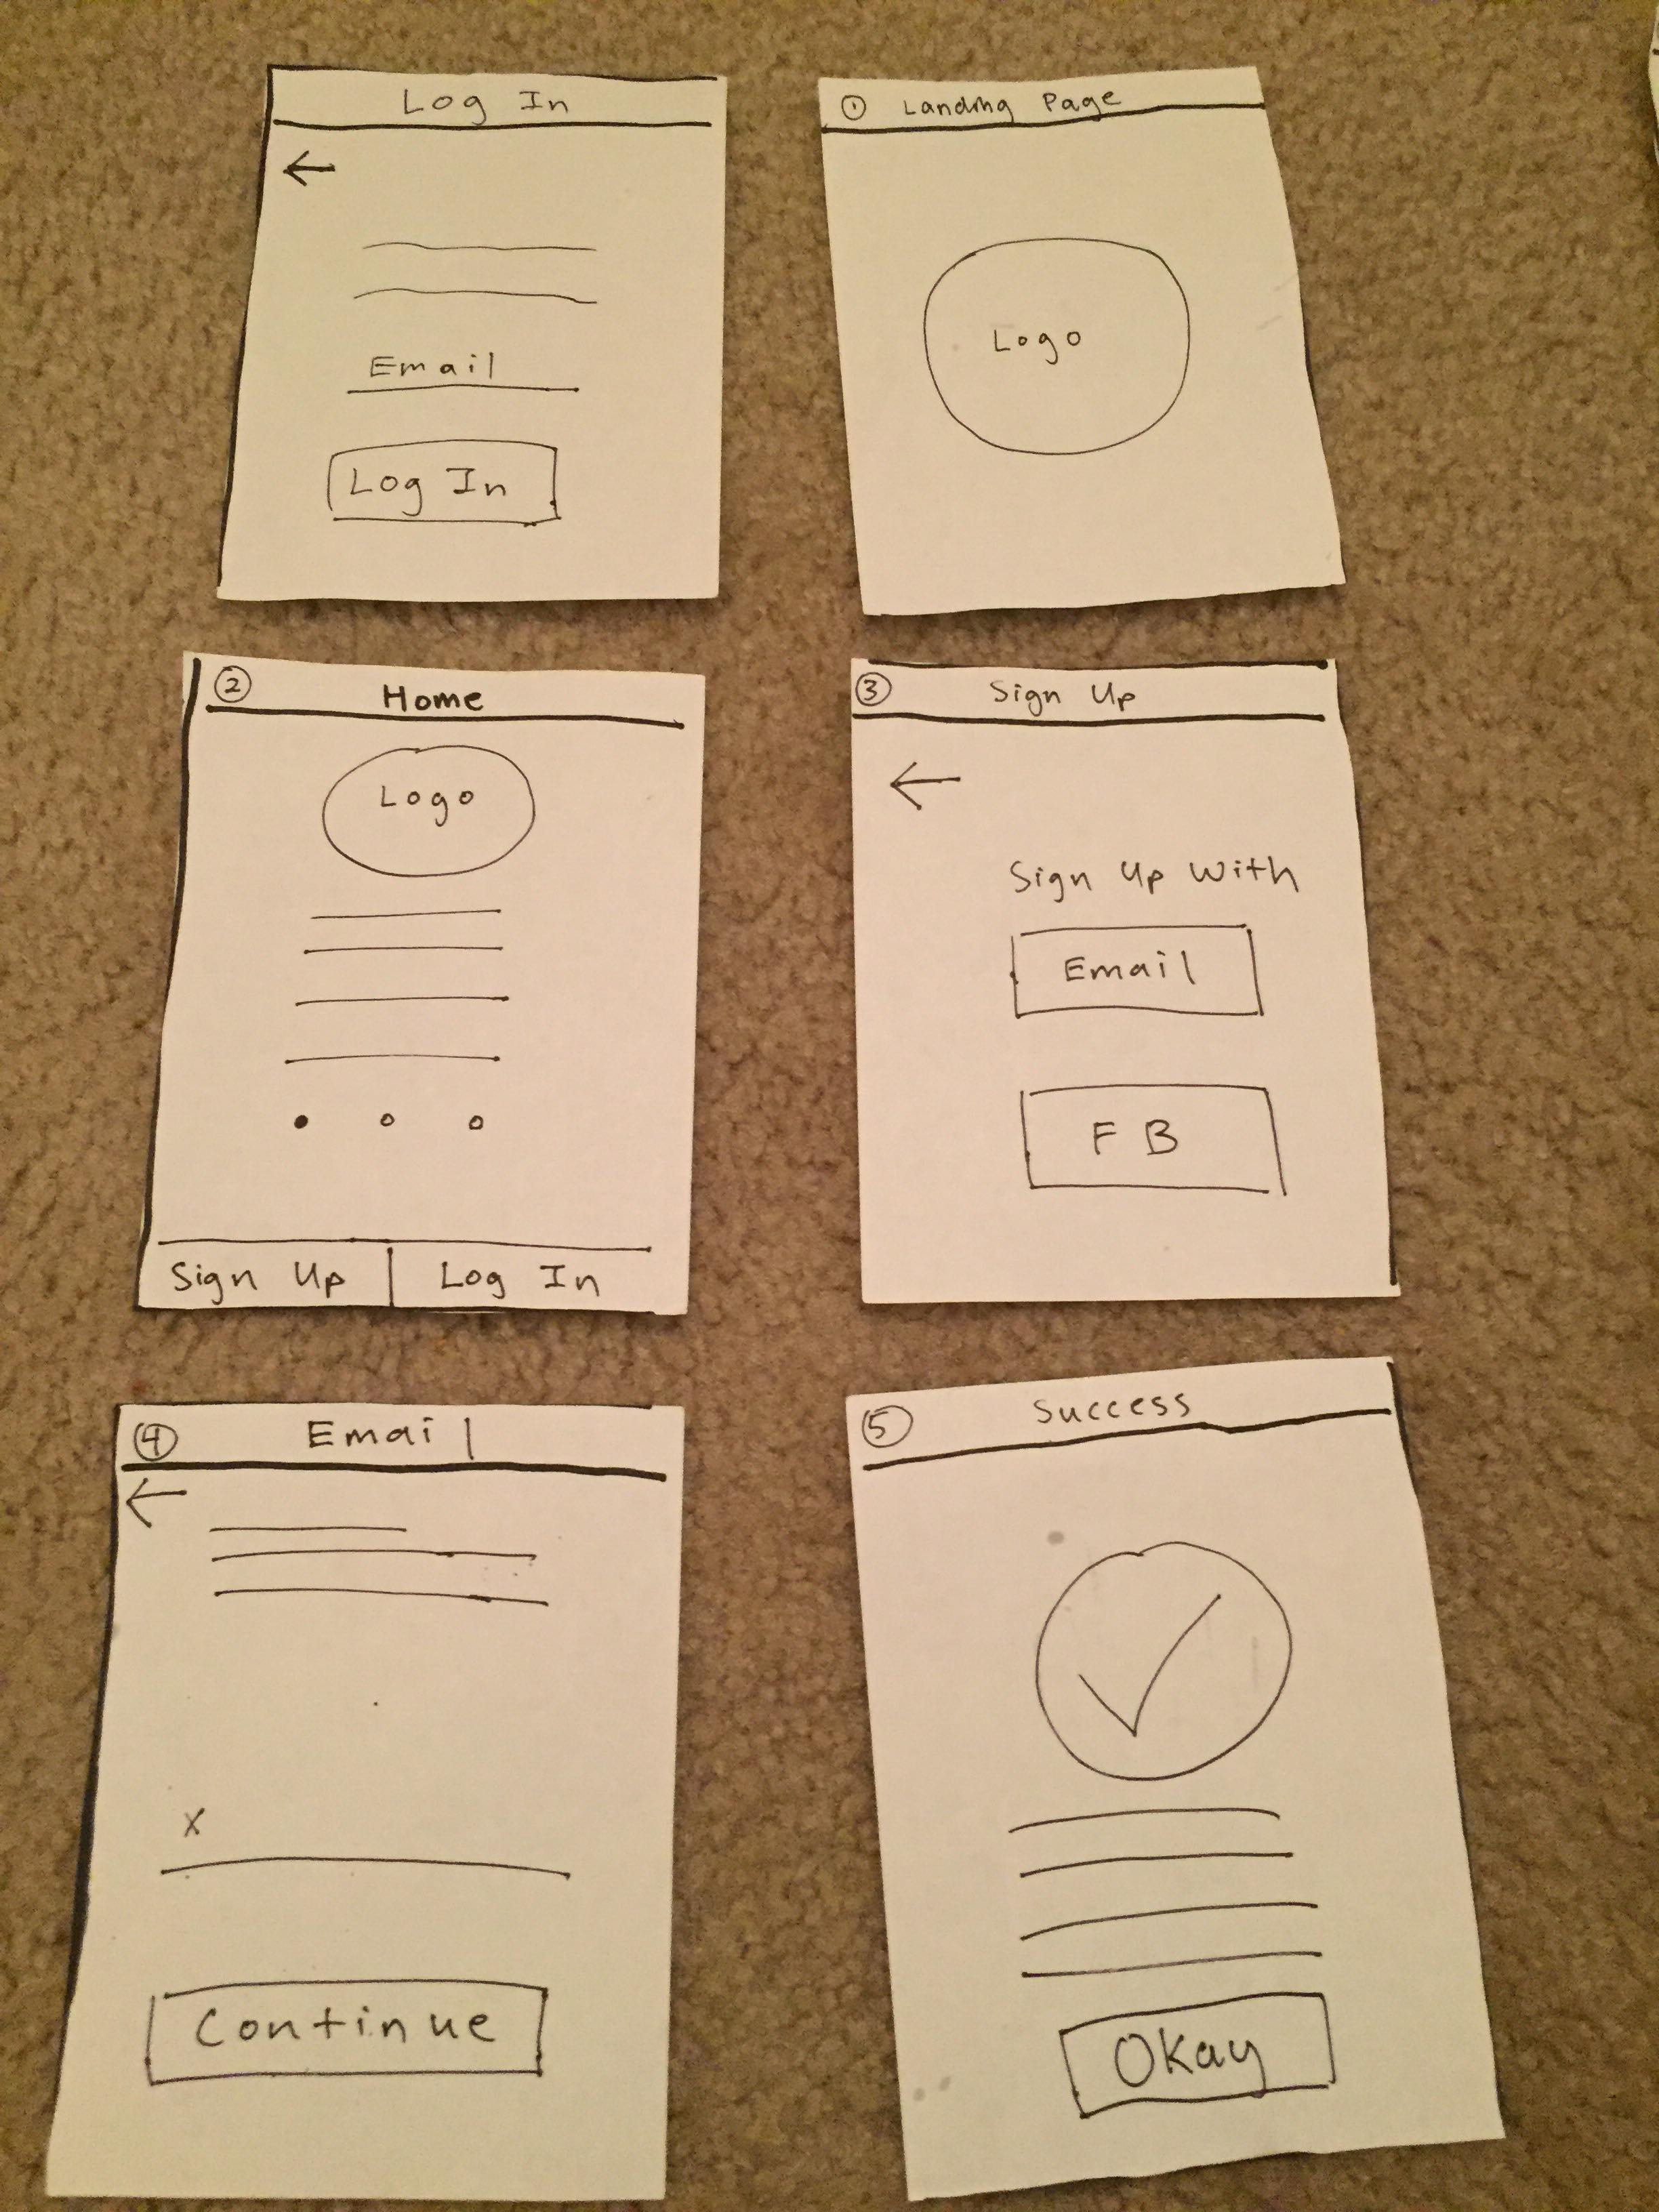 Log In
←
Email
Log In
① Landing Page
Logo
② Home
Logo
Sign Up | Log In
③ Sign Up
←
Sign Up With
Email
FB
④ Email
←
x
Continue
⑤ Success
✓
Okay